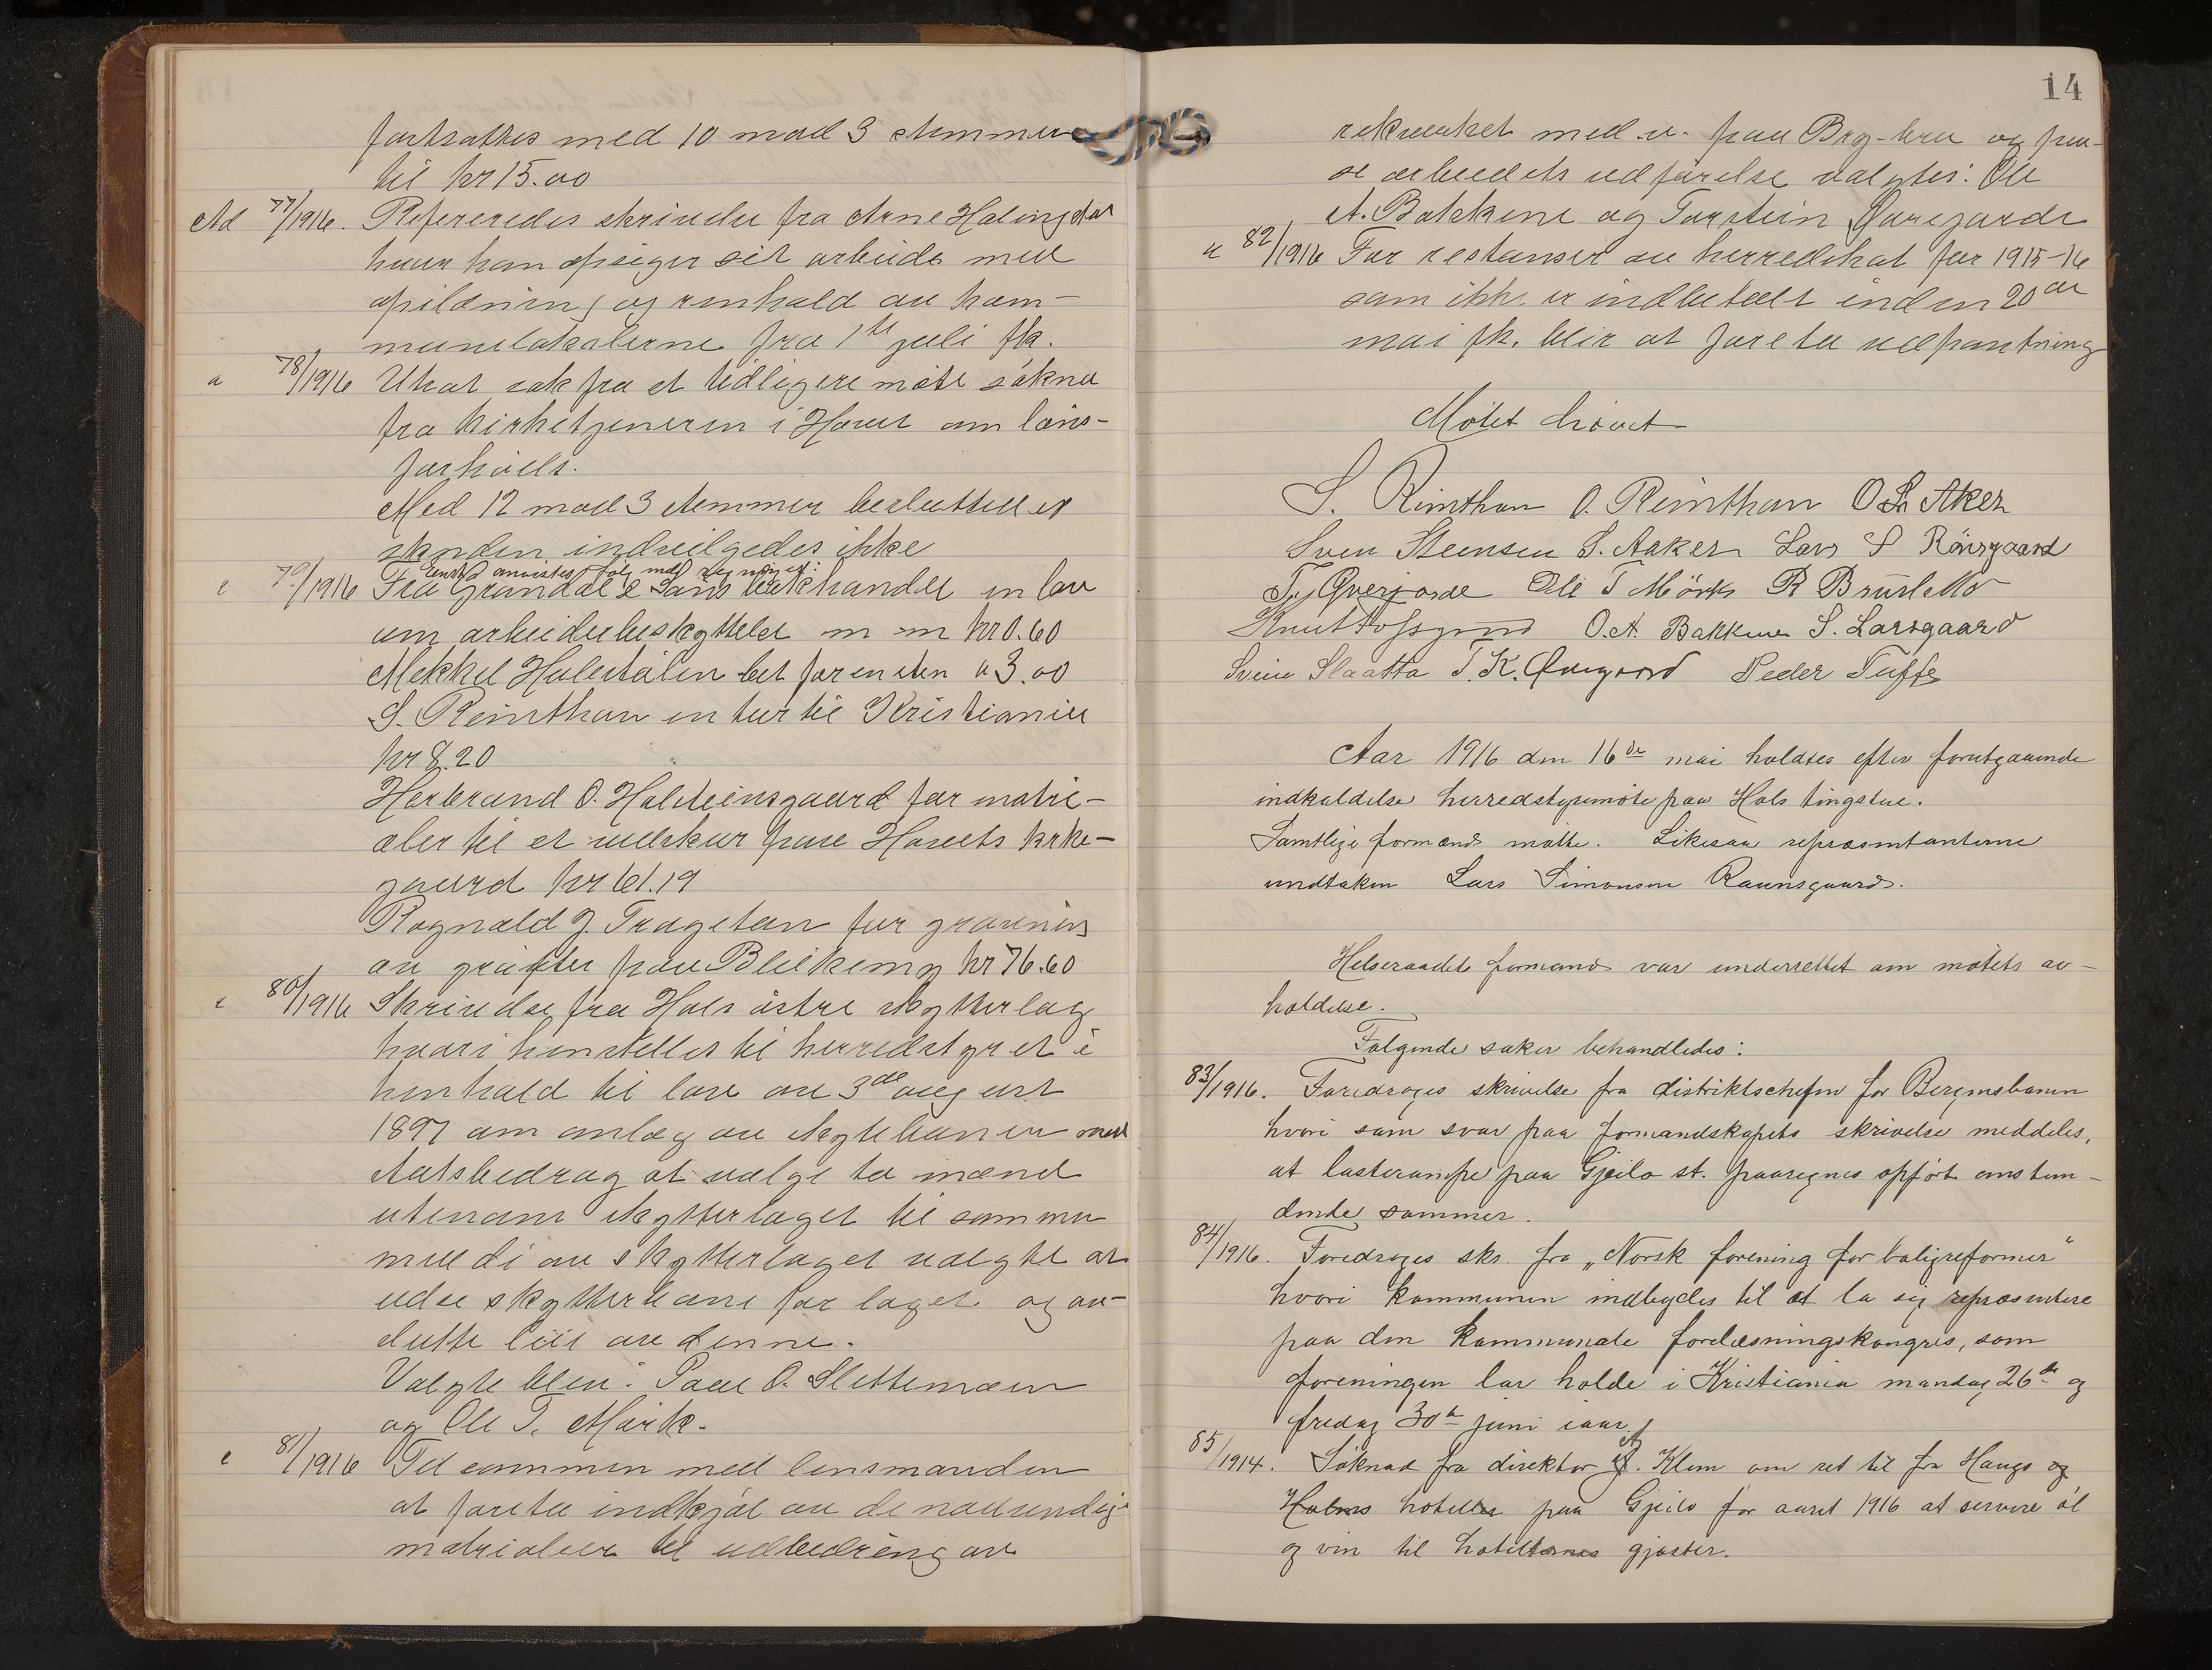 fortsattes med 10 mod 3 stemmer
til kr 15.00
Ad 77/1916. Refereredes skrivelse fra Arne Halingdal
hvor han opsiger sit arbeide med
opildning og renhold av kom-
munelokalerne fra 1ste juli fk.
a 78/1916 Utsat sak fra et tidligere møte søknad
fra kirketjeneren i Hovet om løns-
forhøiels.
Med 12 mod 3 stemmer besluttedes
søknden indvilgedes ikke
79/1916 Fra Grøndal & Søns bokhandel en lov
om arbeiderbeskyttelse m m kr 0.60
Mekkel Halestølen bet for en sten " 3.00
S. Reinthon en tur til Kristiania
kr 8.20
Herbrand O. Holsteinsgaard for matri-
aler til et redskur paa Hovets kirke-
gaard kr 61.19
Rognald J. Trageton for gravning
av grøfter paa Bleikemy kr 76.60
80/1916 Skrivelse fra Hols østre skytterlag
hvori henstilles til herredstyret i
henhold til lov av 3de august
1897 om anlæg av skytebaner med
statsbedrag at vælge to mænd
utenom skytterlaget til sammen
med di av skytterlaget valgte at
udse skytterbane for laget og av-
slutte leie av denne.
Valgte blev: Paul O. Slettemoen
og Ole T. Mørk.
81/1916 Til sammen med lensmanden
at foreta indkjøb av de nødvendige
matrialier til udbedring av
14
rekverket med.v. paa Bry-bru og paa-
se arbeidets udførelse valgtes: Ole
A. Bakkene og Torstein Øvregarde
a 82/1916 For restanser av herredskat for 1915-16
som ikke er indbetalt inden 20de
mai fk. blir at foreta udpantning
Møtet hævet
S. Reinthon O. Reinthon O.S. Aker
Sven Steensen S. Aaker Lars S Rönsgaard
Ole T Mörk R Brusletto
Knut Tofsgard O.A. Bakkene S. Larsgaard
Svein Slaatta T.K. Øvregaard Peder Tuffe
Aar 1916 den 16de mai holdtes efter forutgaaende
indkaldelse herredstyremøte paa Hols tingstue.
Samtlige formænd møtte. Likesaa repræsentanterne
undtaken Lars Simonsen Raunsgaard.
Helseraadets formand var underrettet om møtets av-
holdelse.
Følgende saker behandledes:
83/1916. Foredroges skrivelse fra distriktschefen for Bergensbanen
hvori som svar paa formandskapets skrivelse meddeles,
at lasterampe paa Gjeilo st. paaregnes opført anstun-
dende sommer.
84/1916. Foredroges skr. fra „Norsk forening for boligreformer"
hvori kommunen indbydes til at la sig repræsentere
paa den kommunale forelæsningskongres, som
foreningen lar holde i Kristiania mandag 26de og
fredag 30te juni iaar.
85/1914. Søknad fra direktør A. Klem om ret til fra Haugs og
Holms hoteller paa Gjeilo for aaret 1916 at servere øl
og vin til hotellernes gjæster.